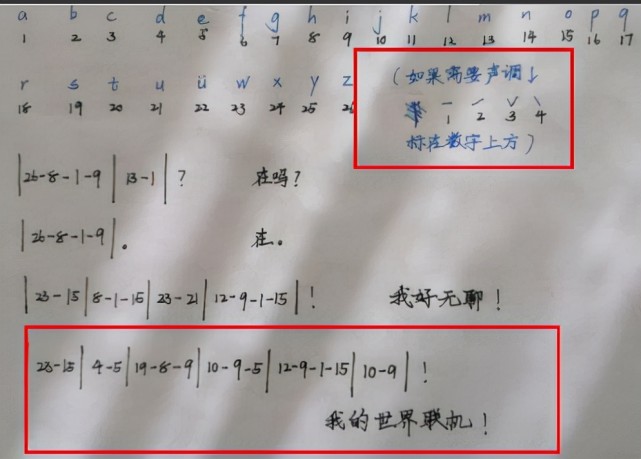 a b c d e f g h i j k l m n o p q
1 2 3 4 5 6 7 8 9 10 11 12 13 14 15 16 17
r s t u ü w x y z
18 19 20 21 22 23 24 25 26
(如果需要声调↓
ˉ ˊ ˇ ˋ
1 2 3 4
标注数字上方)
|26-8-1-9|13-1|? 在吗?
|26-8-1-9|。 在。
|23-15|8-1-15|23-21|12-9-1-15|! 我好无聊!
23-15|4-5|19-8-9|10-9-5|12-9-1-15|10-9|!
我的世界联机!